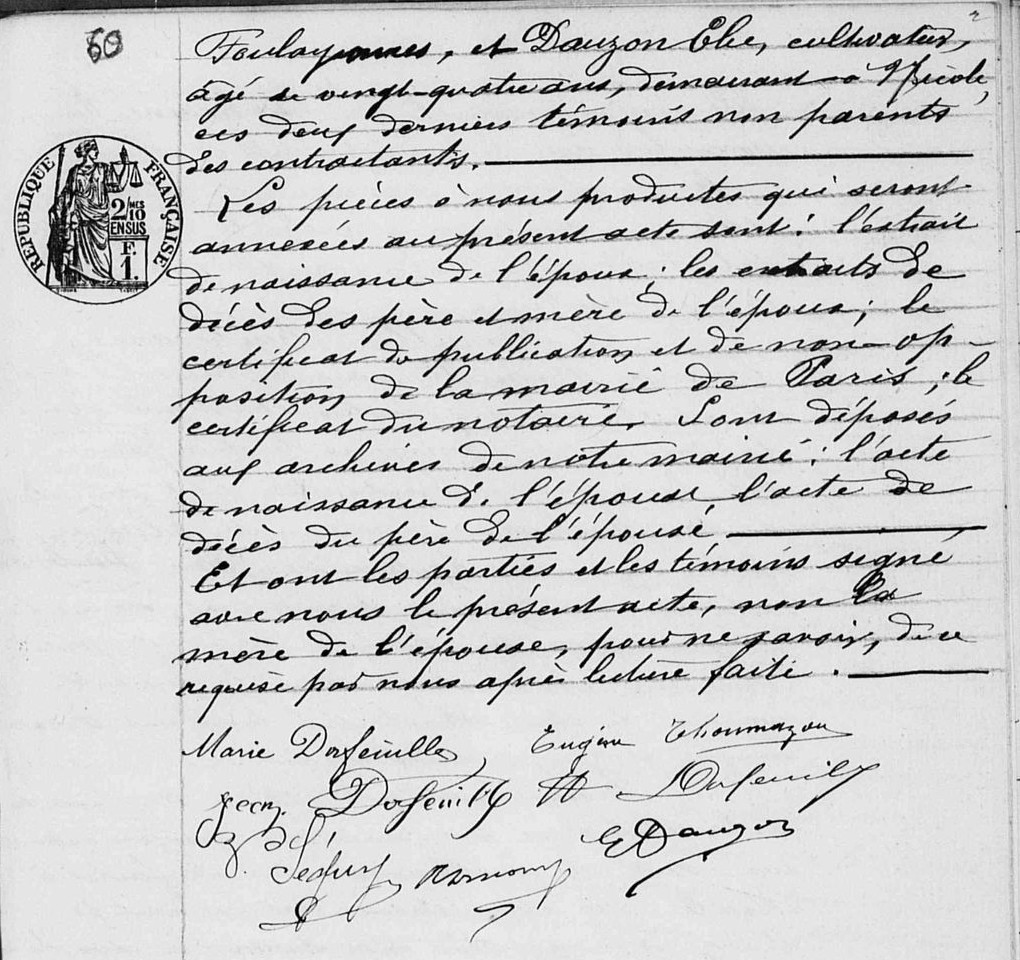 60
2
Foulayronnes, et Dauzon Elie, cultivateur,
âgé de vingt-quatre ans, demeurant à Nicole,
ces deux derniers témoins non parents
des contractants.
RÉPUBLIQUE FRANÇAISE
2/10
EN SUS
F.
1.
Les pièces à nous produites qui seront
annexées au présent acte sont : l'extrait
de naissance de l'époux ; les extraits de
décès des père et mère de l'époux ; le
certificat de publication et de non-op-
position de la mairie de Paris ; le
certificat du notaire. Sont déposés
aux archives de notre mairie : l'acte
de naissance de l'épouse, l'acte de
décès du père de l'épouse.
Et ont les parties et les témoins signé
avec nous le présent acte, non la
mère de l'épouse, pour ne savoir, de ce
requise par nous après lecture faite.
Marie Dorfeuille Eugène Thoumazou
Jean Dorfeuille Dorfeuille
E Dauzon